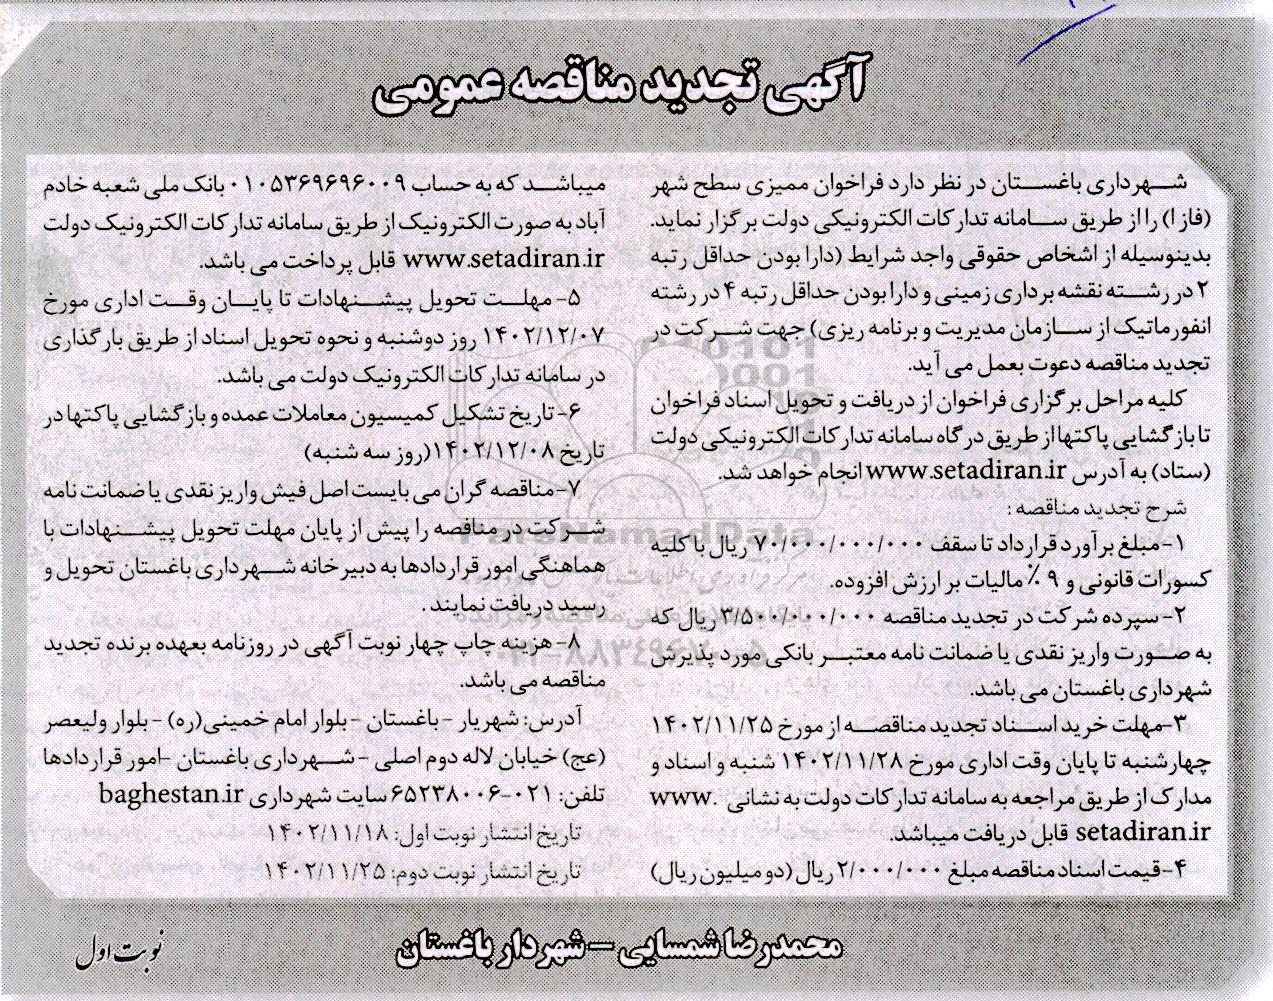 آگهی تجدید مناقصه عمومی
شهرداری باغستان در نظر دارد فراخوان ممیزی سطح شهر
(فاز ۱) را از طریق سامانه تدارکات الکترونیکی دولت برگزار نماید.
بدینوسیله از اشخاص حقوقی واجد شرایط (دارا بودن حداقل رتبه
۲ در رشته نقشه برداری زمینی و دارا بودن حداقل رتبه ۴ در رشته
انفورماتیک از سازمان مدیریت و برنامه ریزی) جهت شرکت در
تجدید مناقصه دعوت بعمل می آید.
کلیه مراحل برگزاری فراخوان از دریافت و تحویل اسناد فراخوان
تا بازگشایی پاکتها از طریق درگاه سامانه تدارکات الکترونیکی دولت
(ستاد) به آدرس www.setadiran.ir انجام خواهد شد.
شرح تجدید مناقصه :
۱-مبلغ برآورد قرارداد تا سقف ۷۰/۰۰۰/۰۰۰/۰۰۰ ریال با کلیه
کسورات قانونی و ۹٪ مالیات بر ارزش افزوده.
۲-سپرده شرکت در تجدید مناقصه ۳/۵۰۰/۰۰۰/۰۰۰ ریال که
به صورت واریز نقدی یا ضمانت نامه معتبر بانکی مورد پذیرش
شهرداری باغستان می باشد.
۳-مهلت خرید اسناد تجدید مناقصه از مورخ ۱۴۰۲/۱۱/۲۵
چهارشنبه تا پایان وقت اداری مورخ ۱۴۰۲/۱۱/۲۸ شنبه و اسناد و
مدارک از طریق مراجعه به سامانه تدارکات دولت به نشانی www.
setadiran.ir قابل دریافت میباشد.
۴-قیمت اسناد مناقصه مبلغ ۲/۰۰۰/۰۰۰ ریال (دو میلیون ریال)
میباشد که به حساب ۰۱۰۵۳۶۹۶۹۶۰۰۹ بانک ملی شعبه خادم
آباد به صورت الکترونیک از طریق سامانه تدارکات الکترونیک دولت
www.setadiran.ir قابل پرداخت می باشد.
۵- مهلت تحویل پیشنهادات تا پایان وقت اداری مورخ
۱۴۰۲/۱۲/۰۷ روز دوشنبه و نحوه تحویل اسناد از طریق بارگذاری
در سامانه تدارکات الکترونیک دولت می باشد.
۶- تاریخ تشکیل کمیسیون معاملات عمده و بازگشایی پاکتها در
تاریخ ۱۴۰۲/۱۲/۰۸(روز سه شنبه)
۷-مناقصه گران می بایست اصل فیش واریز نقدی یا ضمانت نامه
شرکت در مناقصه را پیش از پایان مهلت تحویل پیشنهادات با
هماهنگی امور قراردادها به دبیرخانه شهرداری باغستان تحویل و
رسید دریافت نمایند .
۸- هزینه چاپ چهار نوبت آگهی در روزنامه بعهده برنده تجدید
مناقصه می باشد.
آدرس: شهریار - باغستان - بلوار امام خمینی(ره) - بلوار ولیعصر
(عج) خیابان لاله دوم اصلی - شهرداری باغستان -امور قراردادها
تلفن: ۰۲۱-۶۵۲۳۸۰۰۶ سایت شهرداری baghestan.ir
تاریخ انتشار نوبت اول: ۱۴۰۲/۱۱/۱۸
تاریخ انتشار نوبت دوم: ۱۴۰۲/۱۱/۲۵
محمدرضا شمسایی - شهردار باغستان
نوبت اول
ParsNamadData